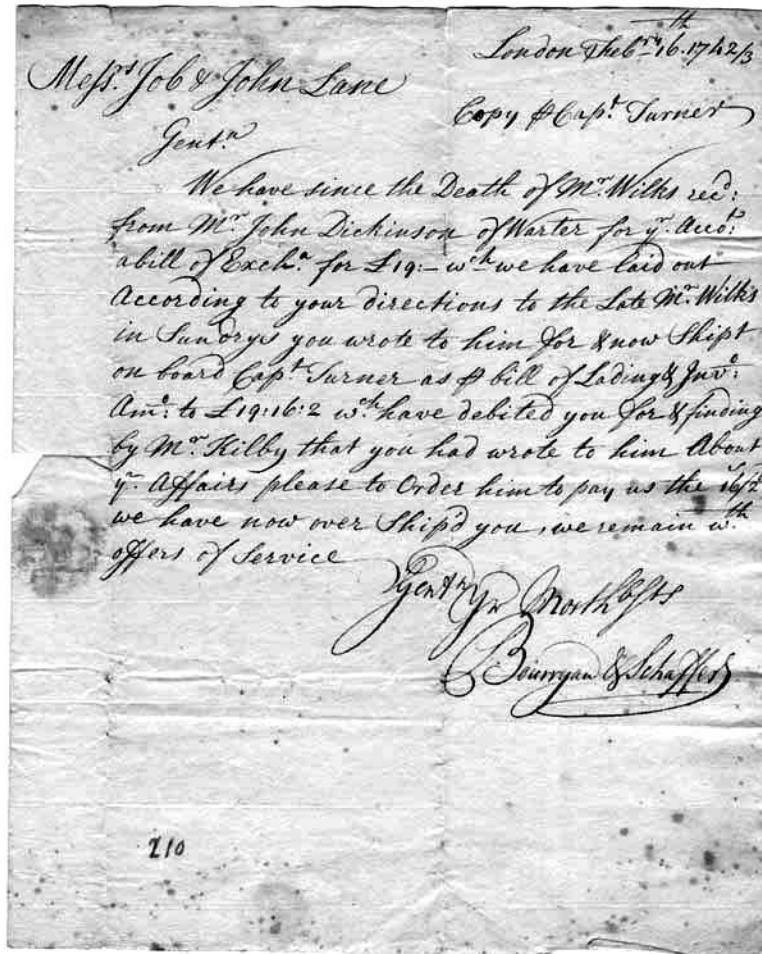 London Feb.ry 16.th 1742/3
Mess.rs Job & John Lane
Copy ⅌ Cap.t Turner
Gent.n
We have since the Death of M.r Wilks rec.d:
from M.r John Dickinson of Warter for y.r Acco.t:
a bill of Exch.a for £19:– w.ch we have laid out
According to your directions to the Late M.r Wilks
in Sundrys you wrote to him for & now Shipt
on board Cap.t Turner as ⅌ bill of Lading & Inv.o:
Am.o: to £19:16:2 w.ch have debited you for & finding
by M.r Kilby that you had wrote to him About
y.r Affairs please to Order him to pay us the 16/2
we have now over Ship'd you, we remain w.th
offers of Service
Gent.n Y.r
Bourryau & Schaffer
210